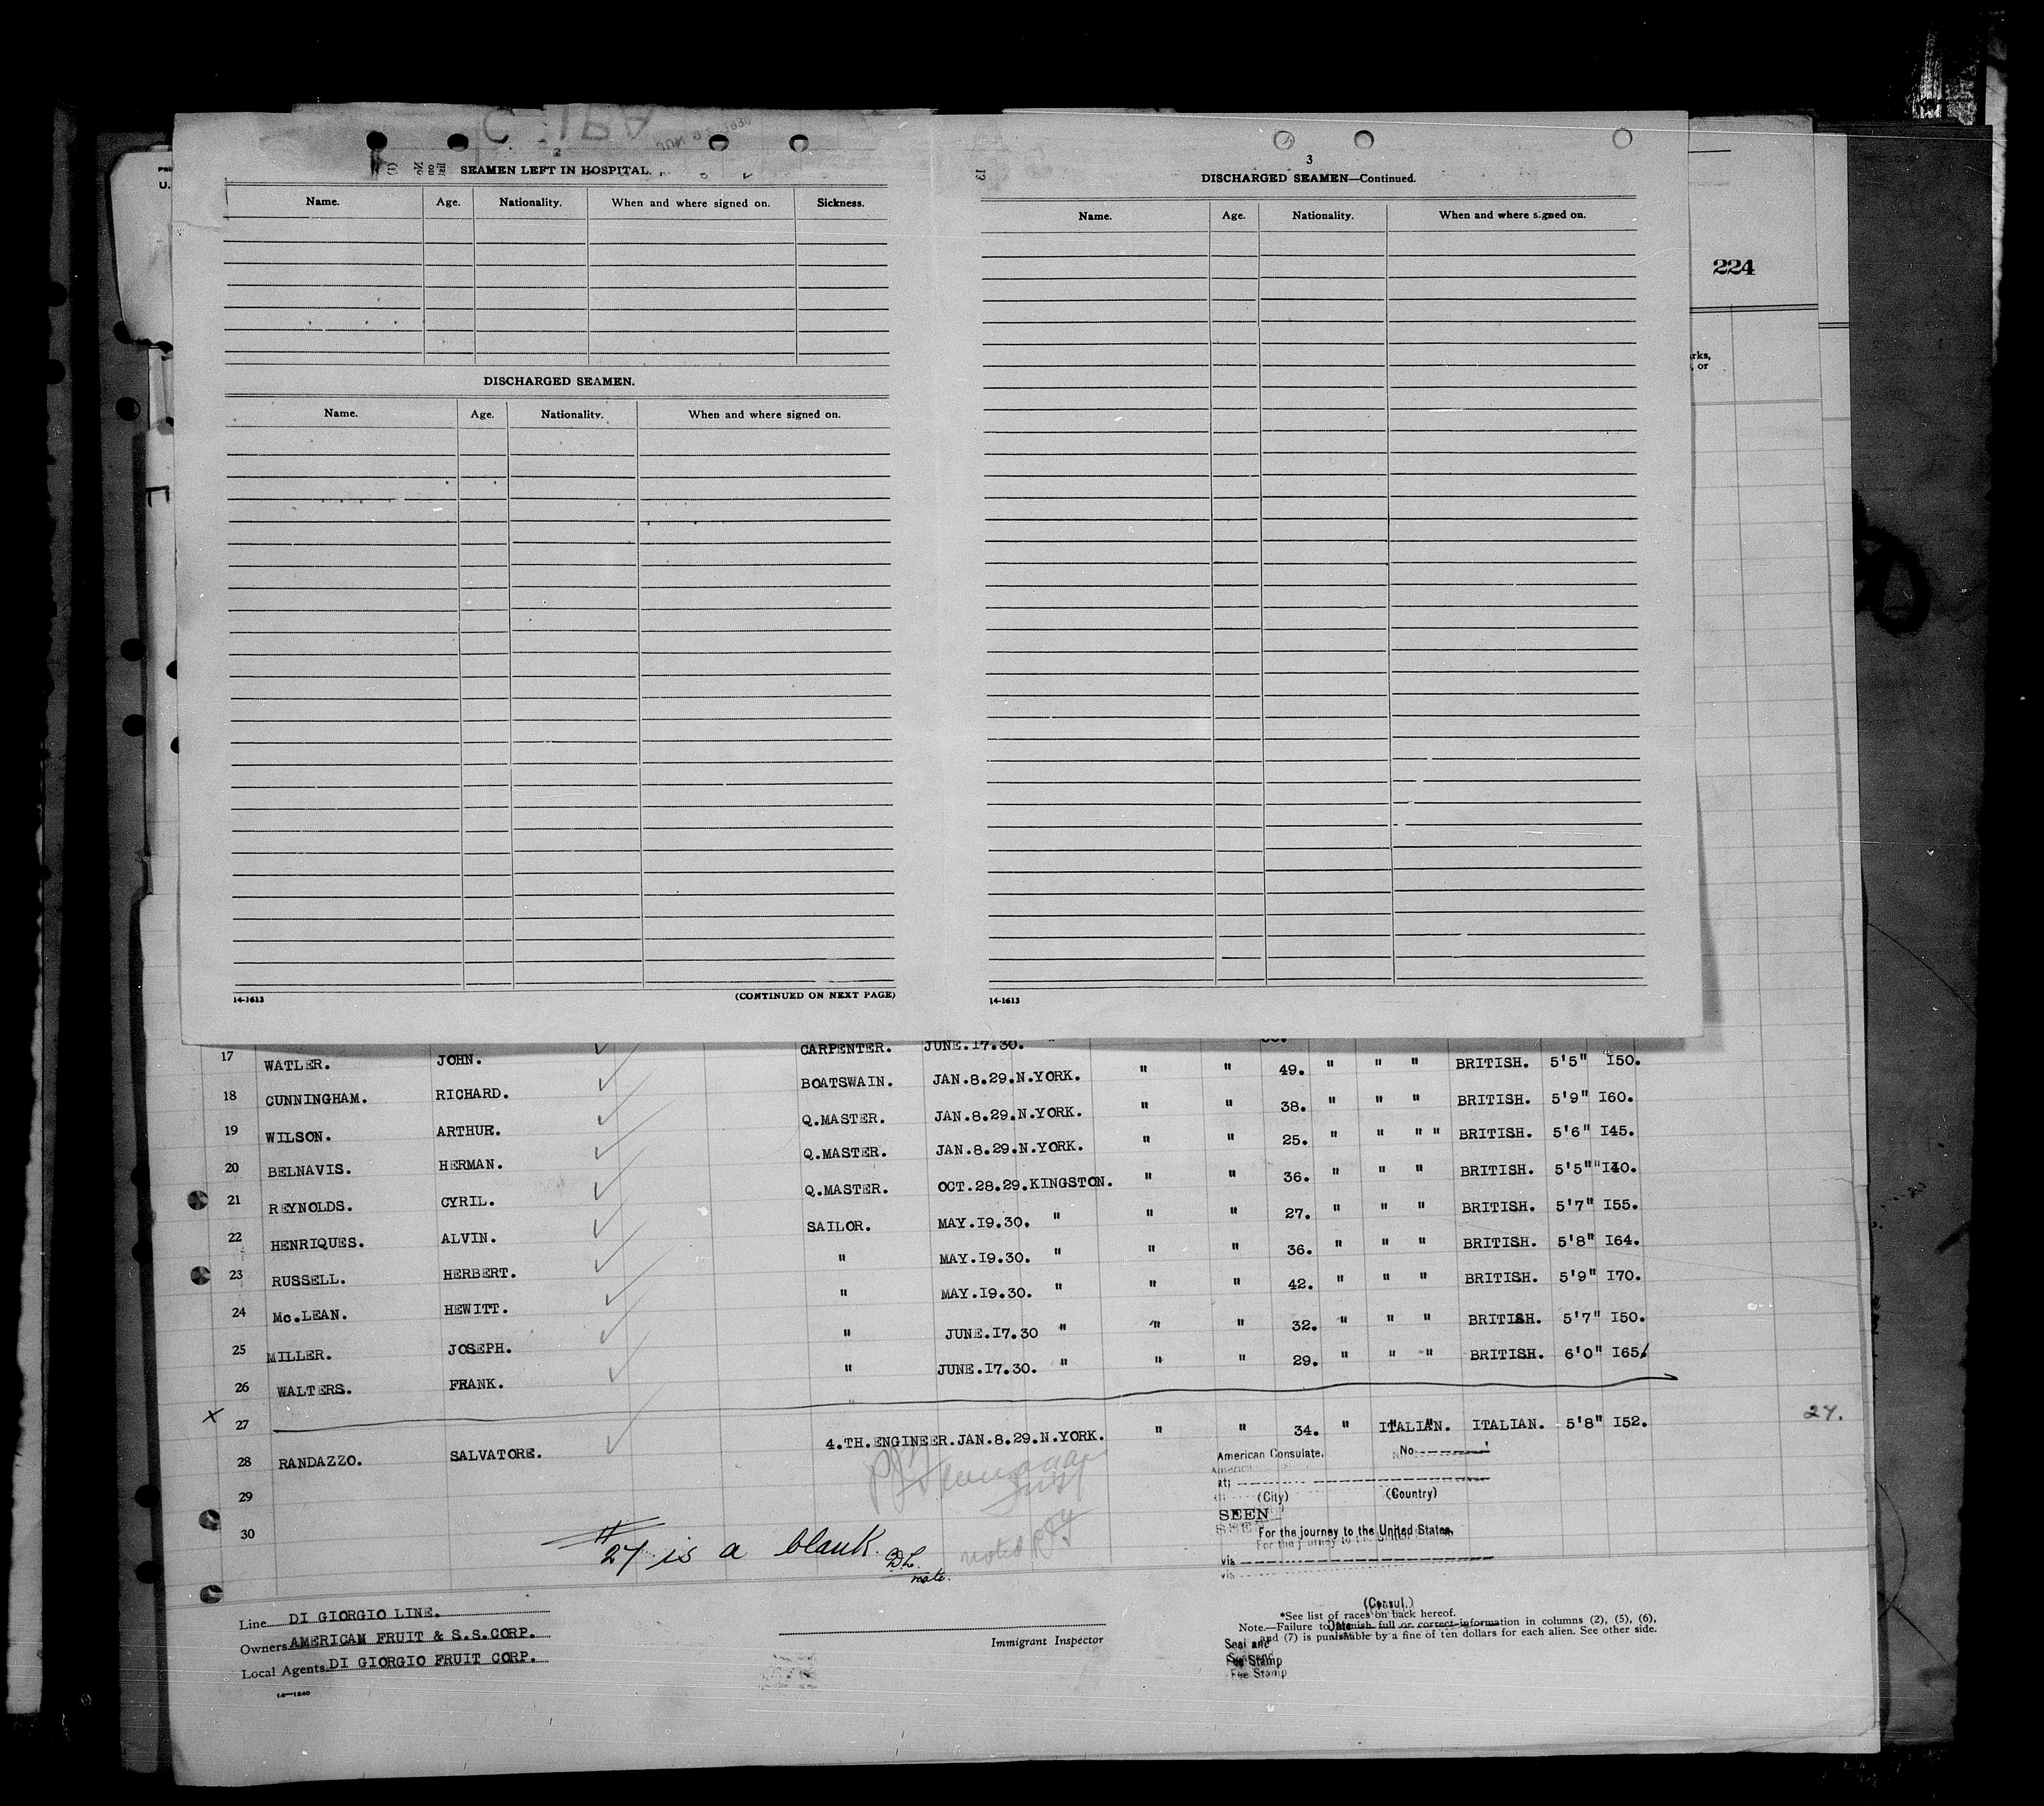 2
SEAMEN LEFT IN HOSPITAL.
Name. Age. Nationality. When and where signed on. Sickness.
DISCHARGED SEAMEN.
Name. Age. Nationality. When and where signed on.
14-1613 (CONTINUED ON NEXT PAGE)
3
DISCHARGED SEAMEN—Continued.
Name. Age. Nationality. When and where signed on.
14-1613
224
rks,
, or
17 WATLER. JOHN. CARPENTER. JUNE.17.30. "
18 CUNNINGHAM. RICHARD. BOATSWAIN. JAN.8.29.N.YORK. " " 49. " " " BRITISH. 5'5" I50.
19 WILSON. ARTHUR. Q.MASTER. JAN.8.29.N.YORK. " " 38. " " " BRITISH. 5'9" I60.
20 BELNAVIS. HERMAN. Q.MASTER. JAN.8.29.N.YORK. " " 25. " " " " BRITISH. 5'6" I45.
21 REYNOLDS. CYRIL. Q.MASTER. OCT.28.29.KINGSTON. " " 36. " " " BRITISH. 5'5"" I40.
22 HENRIQUES. ALVIN. SAILOR. MAY.I9.30. " " " 27. " " " BRITISH. 5'7" I55.
23 RUSSELL. HERBERT. " MAY.I9.30. " " " 36. " " " BRITISH. 5'8" I64.
24 Mc.LEAN. HEWITT. " MAY.I9.30. " " " 42. " " " BRITISH. 5'9" I70.
25 MILLER. JOSEPH. " JUNE.I7.30 " " " 32. " " " BRITISH. 5'7" I50.
26 WALTERS. FRANK. " JUNE.I7.30. " " " 29. " " " BRITISH. 6'0" I65.
x 27
28 RANDAZZO. SALVATORE. 4.TH.ENGINEER.JAN.8.29.N.YORK. " " 34. " ITALIAN. ITALIAN. 5'8" I52. 27.
29
30
# 27 is a blank. mate.
noted
American Consulate. No.
at;
(City) (Country)
SEEN
For the journey to the United States.
via
(Consul.)
Date
Seal and
Fee Stamp
Fee Stamp
Line DI GIORGIO LINE.
Owners AMERICAN FRUIT & S.S.CORP.
Local Agents DI GIORGIO FRUIT CORP.
14—1240
Immigrant Inspector
*See list of races on back hereof.
Note.—Failure to furnish full or correct information in columns (2), (5), (6),
and (7) is punishable by a fine of ten dollars for each alien. See other side.